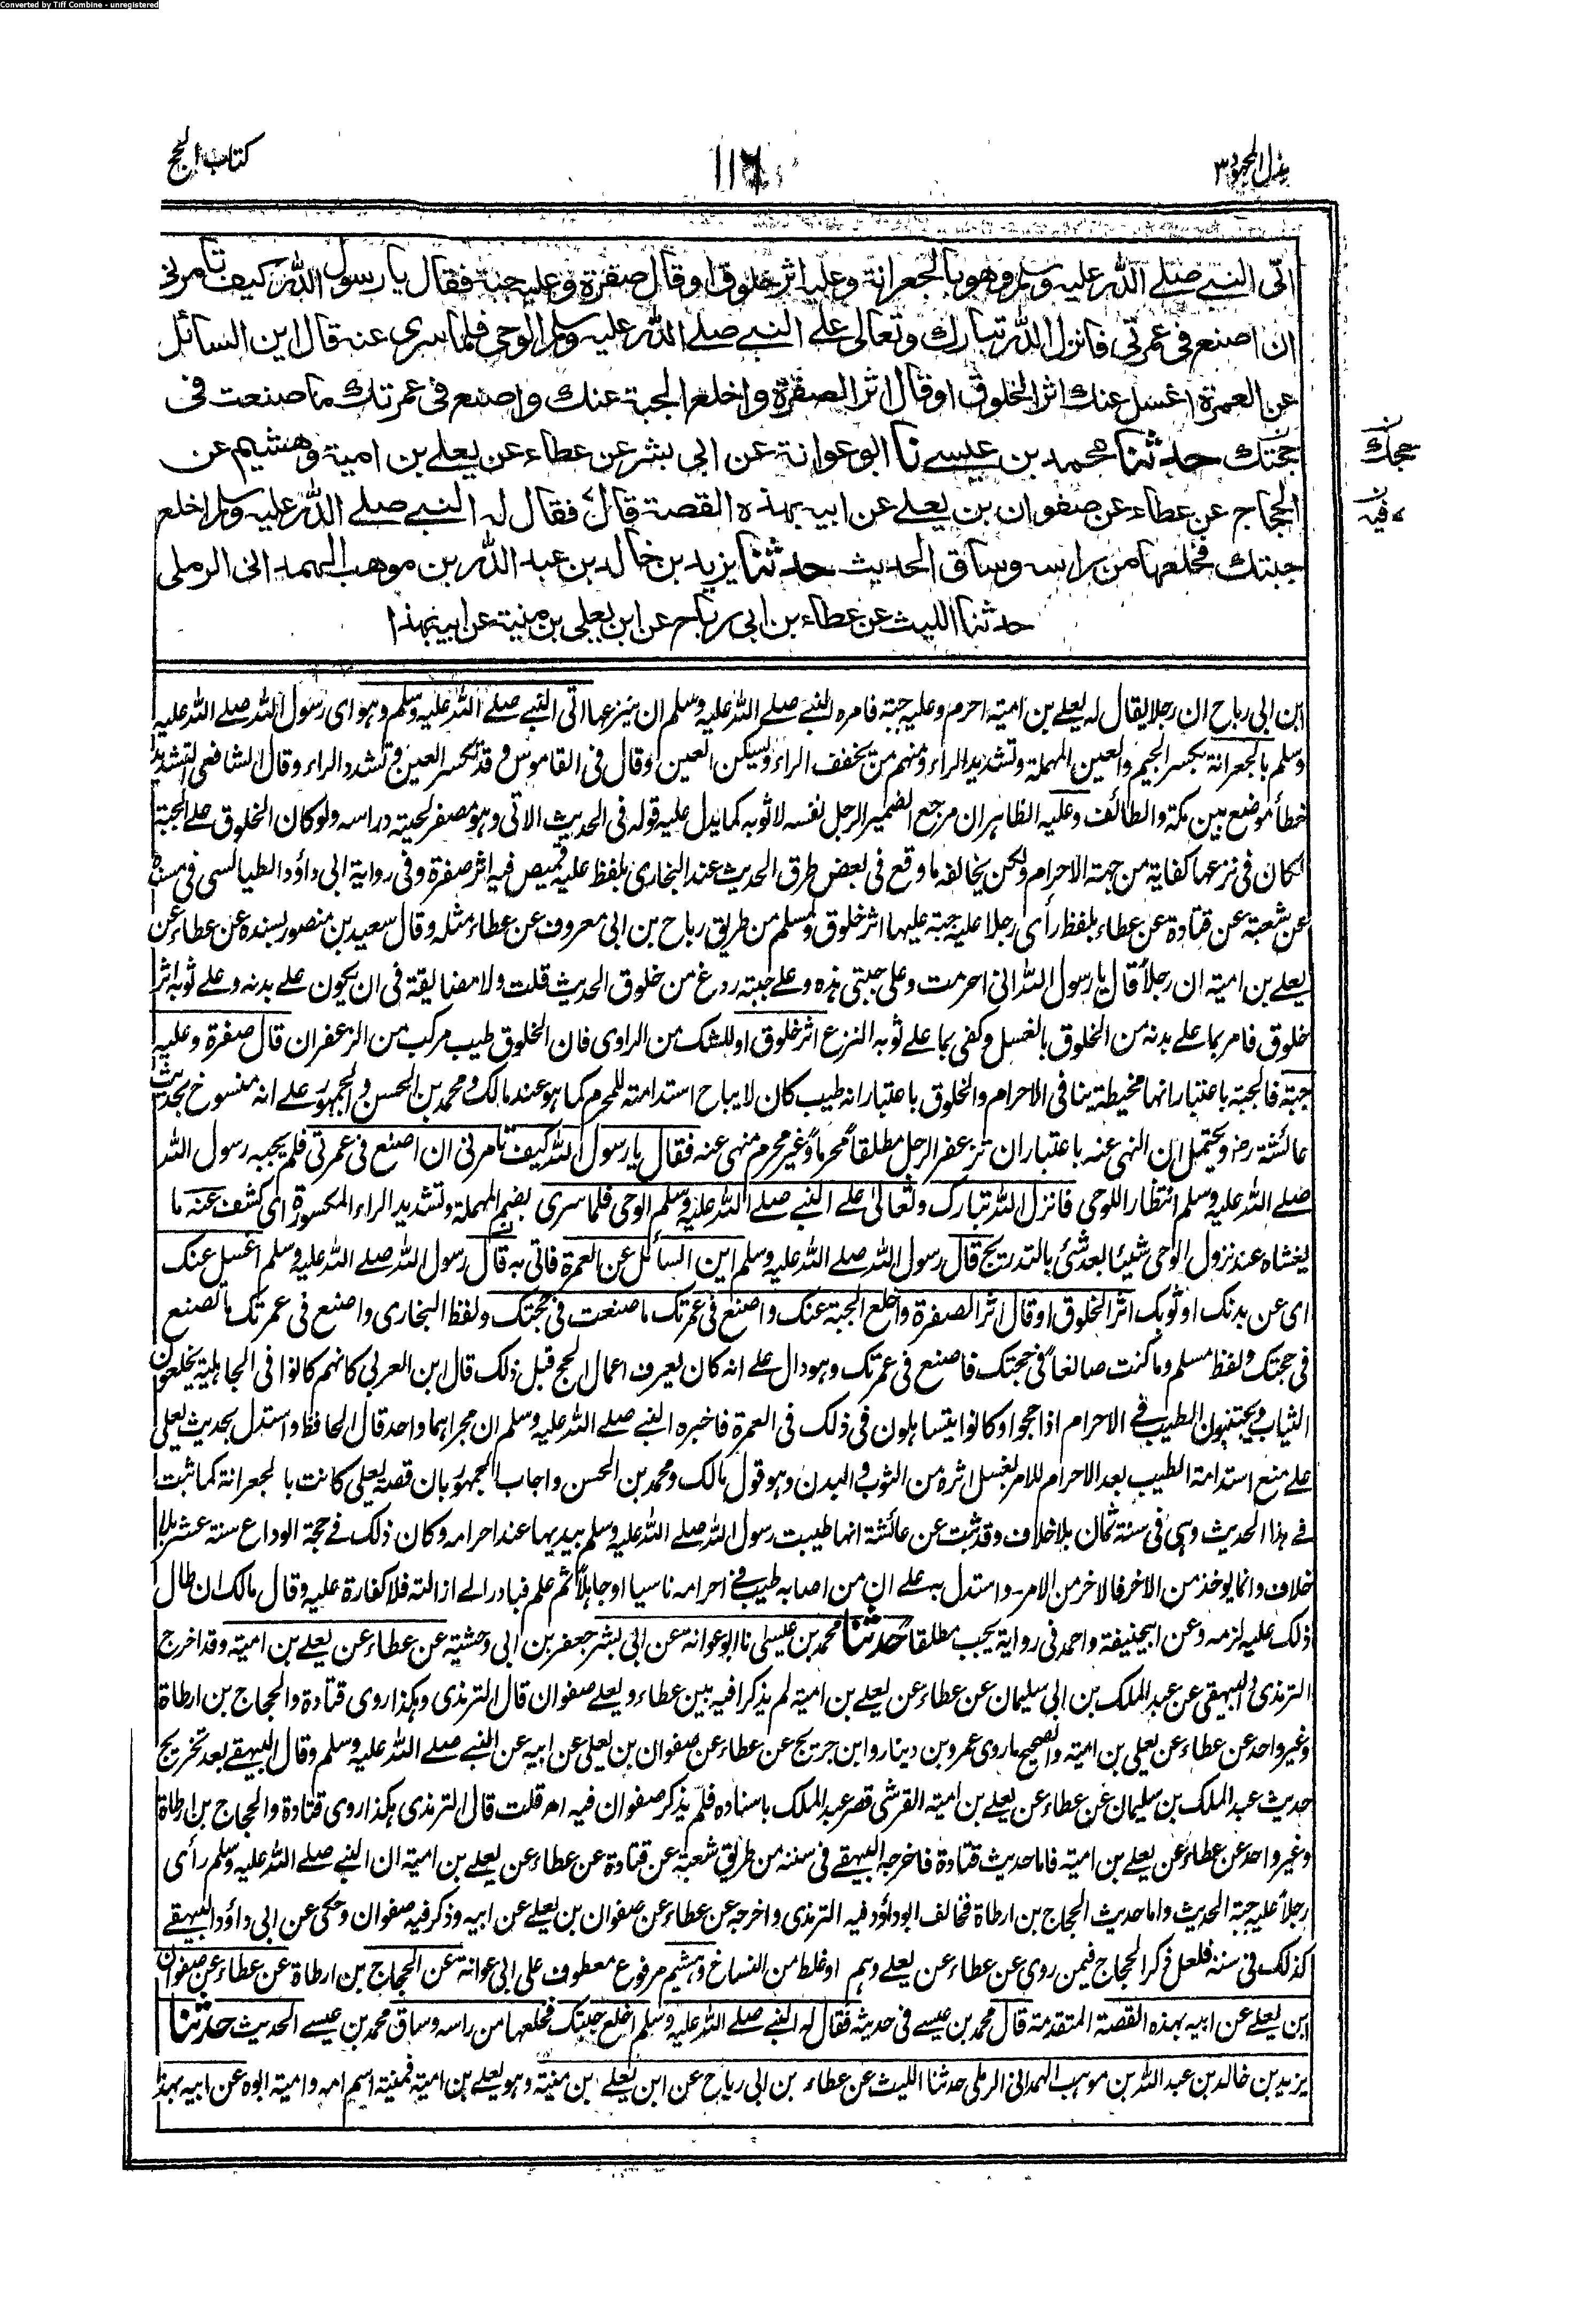 Converted by Tiff Combine - unregistered
بذل المجهود ٣
١١٦
كتاب الحج
اتى النبي صلے الله عليه وسلم وهو بالجعرانة وعليه اثر خلوق او قال صفرة وعليه جبة فقال يا رسول الله كيف تامرني
ان اصنع في عمرتي فانزل الله تبارك وتعالى على النبي صلے الله عليه وسلم الوحي فلما سري عنه قال اين السائل
عن العمرة اغسل عنك اثر الخلوق او قال اثر الصفرة واخلع الجبة عنك واصنع في عمرتك ما صنعت في
حجتك حدثنا محمد بن عيسے نا ابو عوانة عن ابي بشر عن عطاء عن يعلے بن امية وهشيم عن
الحجاج عن عطاء عن صفوان بن يعلے عن ابيه بهذه القصة قال فقال له النبي صلے الله عليه وسلم اخلع
جبتك فخلعها من راسه وساق الحديث حدثنا يزيد بن خالد بن عبد الله بن موهب الهمداني الرملي
حدثنا الليث عن عطاء بن ابي رباح عن ابن يعلى بن منية عن ابيه بهذا
حجك
فيه
ابن ابي رباح ان رجلا يقال له يعلے بن امية احرم وعليه جبة فامره النبي صلے الله عليه وسلم ان ينزعها اتى النبي صلے الله عليه وسلم وهو اى رسول الله صلے الله عليه
وسلم بالجعرانة بكسر الجيم والعين المهملة وتشديد الراء ومنهم من يخفف الراء ويسكن العين وقال فى القاموس وقد تكسر العين وتشدد الراء وقال الشافعى التشديد
خطأ موضع بين مكة والطائف وعليه الظاهر ان مرجع الضمير الرجل نفسه لا ثوبه كما يدل عليه قوله فى الحديث الاتى وهو مصفر لحيته وراسه ولو كان الخلوق علے الجبة
لكان فى نزعها كفاية من جهة الاحرام ولكن يخالفه ما وقع فى بعض طرق الحديث عند البخارى بلفظ عليه قميص فيه اثر صفرة وفى رواية ابى داؤد الطيالسى فى مسنده
عن شعبة عن قتادة عن عطاء بلفظ رأى رجلا عليه جبة عليها اثر خلوق ولمسلم من طريق رباح بن ابى معروف عن عطاء مثله وقال سعيد بن منصور بسنده عن عطاء عن
يعلے بن امية ان رجلاً قال يا رسول الله انى احرمت وعلى جبتى هذه وعلے جبته ردغ من خلوق الحديث قلت ولا مضايقة فى ان يكون علے بدنه وعلے ثوبه اثر
خلوق فامر بما علے بدنه من الخلوق بالغسل وكفى بما علے ثوبه النزع اثر خلوق او للشك من الراوى فان الخلوق طيب مركب من الزعفران قال صفرة وعليه
جبة فالجبة باعتبار انها مخيطة ينافى الاحرام والخلوق باعتبار انه طيب كان لا يباح استدامته للمحرم كما هو عند مالك ومحمد بن الحسن والجمهور علے انه منسوخ بحديث
عائشة رض ويحتمل ان النهى عنه باعتبار ان تزعفر الرجل مطلقاً محرماً وغير محرم منهى عنه فقال يا رسول الله كيف تامرنى ان اصنع فى عمرتى فلم يجبه رسول الله
صلے الله عليه وسلم انتظارا للوحى فانزل الله تبارك وتعالىٰ علے النبي صلے الله عليه وسلم الوحى فلما سرى بضم المهملة وتشديد الراء المكسورة اى كشف عنه ما
يغشاه عند نزول الوحى شيئا بعد شئ بالتدريج قال رسول الله صلے الله عليه وسلم اين السائل عن العمرة فاتى به قال رسول الله صلے الله عليه وسلم اغسل عنك
اى عن بدنك او ثوبك اثر الخلوق او قال اثر الصفرة واخلع الجبة عنك واصنع فى عمرتك ما صنعت فى حجتك ولفظ البخارى واصنع فى عمرتك ما تصنع
فى حجتك ولفظ مسلم وما كنت صانعاً فى حجتك فاصنع فى عمرتك وهو دال علے انه كان يعرف اعمال الحج قبل ذلك قال ابن العربى كانهم كانوا فى الجاهلية يخلعون
الثياب ويجتنبون الطيب فے الاحرام اذا حجوا وكانوا يتساهلون فى ذلك فى العمرة فاخبره النبي صلے الله عليه وسلم ان مجراهما واحد قال الحافظ واستدل بحديث يعلى
علے منع استدامة الطيب بعد الاحرام للامر بغسل اثره من الثوب والبدن وهو قول مالك ومحمد بن الحسن واجاب الجمهور بان قصة يعلى كانت بالجعرانة كما ثبت
فے هذا الحديث وهى فى سنة ثمان بلا خلاف وقد ثبت عن عائشة انها طيبت رسول الله صلے الله عليه وسلم بيديها عند احرامه وكان ذلك فے حجة الوداع سنة عشر بلا
خلاف وانما يوخذ من الاخر فالاخر من الامر - واستدل به علے ان من اصابه طيب فے احرامه ناسيا او جاهلاً ثم علم فبادر الے ازالته فلا كفارة عليه وقال مالك ان طال
ذلك عليه لزمه وعن ابيحنيفة واحمد فى رواية يجب مطلقاً حدثنا محمد بن عيسىٰ نا ابو عوانة عن ابى بشر جعفر بن ابى وحشية عن عطاء عن يعلے بن امية وقد اخرج
الترمذى والبيهقى عن عبد الملك بن ابى سليمان عن عطاء عن يعلے بن امية لم يذكرا فيه بين عطاء ويعلے صفوان قال الترمذى وهكذا روى قتادة والحجاج بن ارطاة
وغير واحد عن عطاء عن يعلى بن امية والصحيح ما روى عمرو بن دينار وابن جريج عن عطاء عن صفوان بن يعلى عن ابيه عن النبي صلے الله عليه وسلم وقال البيهقے بعد تخريج
حديث عبد الملك بن سليمان عن عطاء عن يعلے بن امية القرشى قصر عبد الملك باسناده فلم يذكر صفوان فيه اهـ قلت قال الترمذى هكذا روى قتادة والحجاج بن ارطاة
وغير واحد عن عطاء عن يعلے بن امية فاما حديث قتادة فاخرجه البيهقے فى سننه من طريق شعبة عن قتادة عن عطاء عن يعلے بن امية ان النبي صلے الله عليه وسلم رأى
رجلاً عليه جبة الحديث واما حديث الحجاج بن ارطاة فخالف ابو داؤد فيه الترمذى واخرجه عن عطاء عن صفوان بن يعلے عن ابيه وذكر فيه صفوان وحكى عن ابى داؤد البيهقے
كذلك فى سننه فلعل ذكر الحجاج فيمن روى عن عطاء عن يعلے وهم او غلط من النساخ وهشيم مرفوع معطوف على ابى عوانة عن الحجاج بن ارطاة عن عطاء عن صفوان
ابن يعلے عن ابيه بهذه القصة المتقدمة قال محمد بن عيسے فى حديثه فقال له النبي صلے الله عليه وسلم اخلع جبتك فخلعها من راسه وساق محمد بن عيسے الحديث حدثنا
يزيد بن خالد بن عبد الله بن موهب الهمدانى الرملى حدثنا الليث عن عطاء بن ابى رباح عن ابن يعلے بن منية وهو يعلے بن امية فمنية اسم امه وامية ابوه عن ابيه بهذا